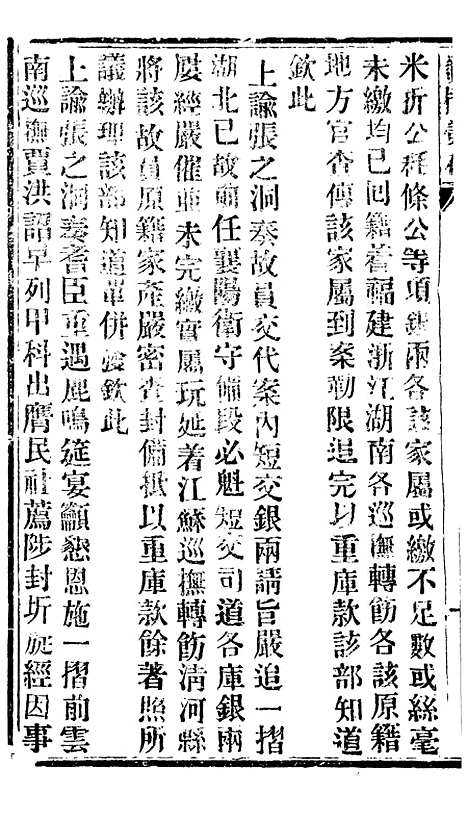 米折公耗條公等項銀兩各該家屬或繳不足數或絲毫
未繳均已回籍著福建浙江湖南各巡撫轉飭各該原籍
地方官查傳該家屬到案勒限追完以重庫款該部知道
欽此
上諭張之洞奏故員交代案內短交銀兩請旨嚴追一摺
湖北已故前任襄陽衛守備段必魁短交司道各庫銀兩
屢經嚴催並未完繳實屬玩延着江蘇巡撫轉飭清河縣
將該故員原籍家產嚴密查封備抵以重庫款餘著照所
議辦理該部知道單併發欽此
上諭張之洞奏耆臣重遇鹿鳴筵宴籲懇恩施一摺前雲
南巡撫賈洪詔早列甲科出膺民社薦陟封圻旋經因事